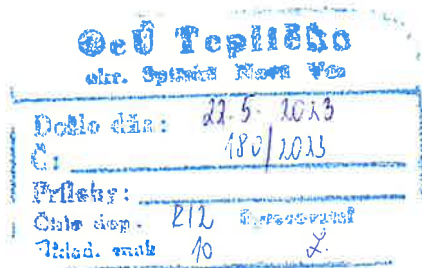 OcÚ Teplička
okr. Spišská Nová Ves
Došlo dňa: 22.5. 2023
Č: 180/2023
Prílohy:
Číslo dop. R12
Uklad. znak 10